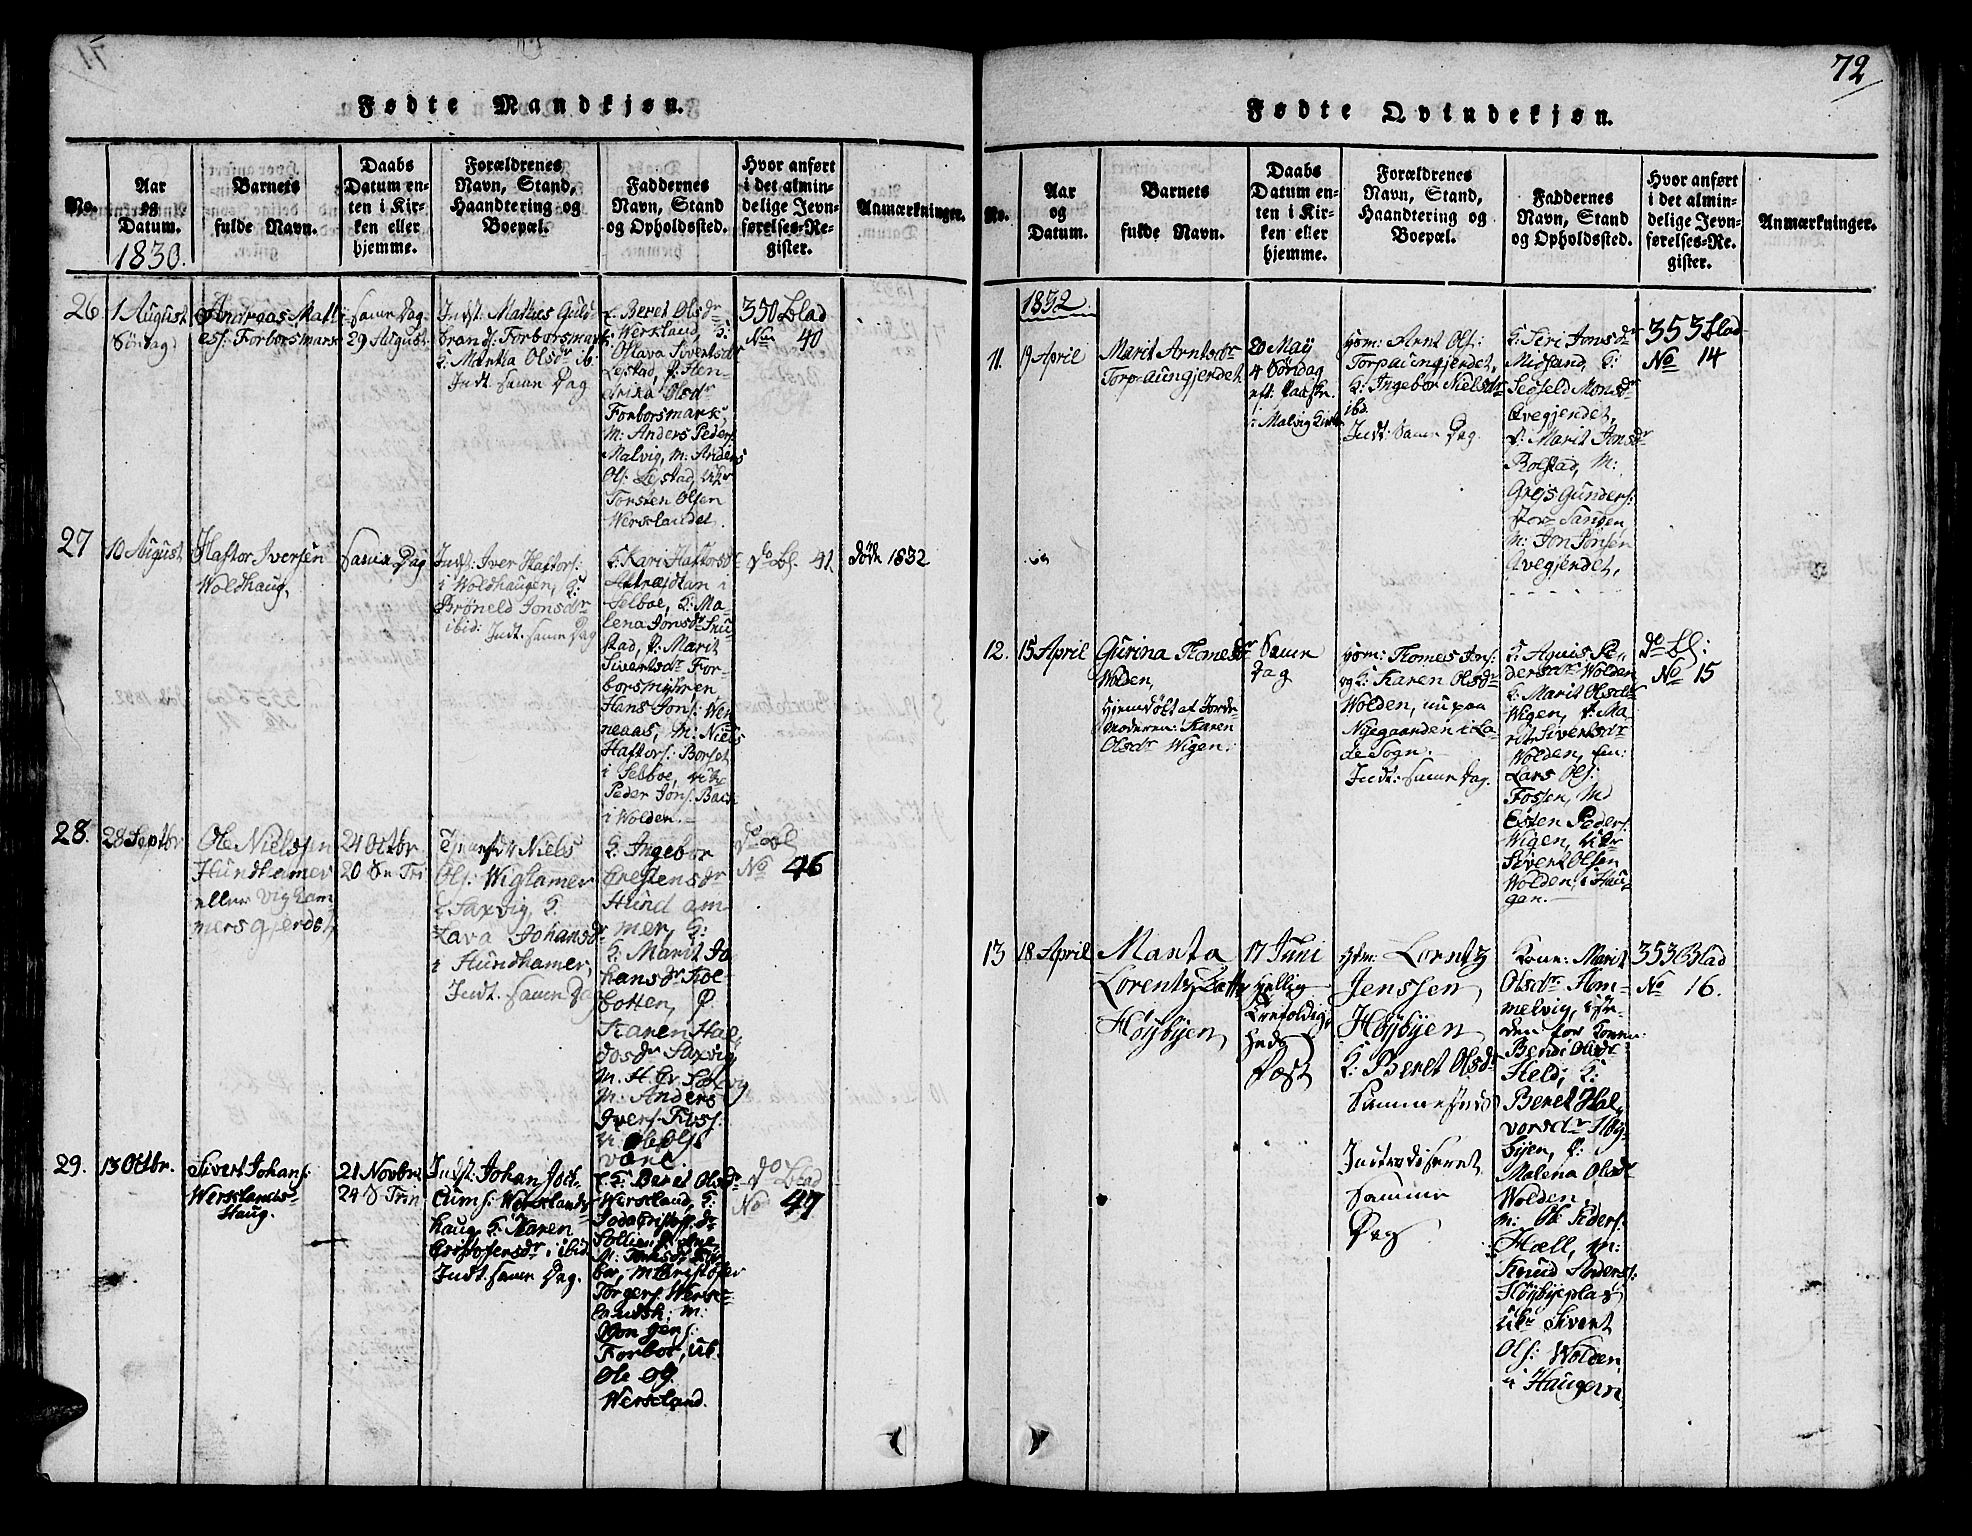 72
Fødte Mandkjøn.
No.
Aar
og
Datum.
1830.
Barnets
fulde Navn.
Daabs
Datum en-
ten i Kir-
ken eller
hjemme.
Forældrenes
Navn, Stand,
Haandtering og
Boepæl.
Faddernes
Navn, Stand
og Opholdssted.
Hvor anført
i det almin-
delige Jevn-
førelses-Re-
gister.
Anmærkninger.
26
1 August
Søndag
Andreas Math
es: Forborsmark
samme Dag
29 August
Indst. Mathies Guld
brands: Forborsmark
K: Martha Olsdr ib.
Indt. samme Dag
K: Beret Olsdr
Werksland, K:
Olava Sivertsdr
Lestad, P: Hen-
drika Olsdr
Forborsmark,
M: Anders Peders:
Malvig, M: Anders
Ols: Lestad,
Torsten Olsen
Werkslandet.
350 Blad
No 40
27
10 August
Haftor Iversen
Woldhaug.
samme Dag
Indst: Iver Haftors:
i Woldhaugen, K:
Brøneld Jonsdr
ibid: Indt. samme Dag
K: Kari Haftorsdr
i
Selboe, K: Ma-
lena Jonsdr
stad, P: Marit
Sivertsdr For-
borsmyhren
Hans Jons: Wer
neaas, M: Niels
Haftors: Borset
i Selboe,
Peder Jons: Bach
i Wolden.
do Bl. 41
døde 1832
28.
28 Septbr
Ole Nielssen
Hundhamer
eller Vigham
mersgjerdet
24 Octbr
20 S n Tri
Niels
Ols: Wighamer
i Saxvig, K.
Lava Johansdr
i Hundhamer,
Indt. samme Dag
K: Ingebor
Crestensdr
Hund am
mer, K:
K: Marit Jo
hansdr
botten, P
Karen Hal
dosdr Saxvig
M. Anders
Ivers. Foss:
29.
13 Octbr.
Sivert Johans:
Werkslands-
Haug.
21 Novbr
24 S Trin
Indst: Johan
Werkslands-
haug, K. Karen
Cristofersdr, ibid
Indt. samme Dag.
K: Beret Olsdr
Werksland, K:
M: Cristofer
Torgers: Werks-
M:
Forbor,
Ole
Werksland.
do Blad
No 47
Fødte Qvindekjøn.
No.
Aar
og
Datum.
Barnets
fulde Navn.
Daabs
Datum en-
ten i Kir-
ken eller
hjemme.
Forældrenes
Navn, Stand,
Haandtering og
Boepæl.
Faddernes
Navn, Stand
og Opholdssted.
Hvor anført
i det almin-
delige Jevn-
førelses-Re-
gister.
Anmærkninger.
1832.
11.
9 April
Marit Arntsdr
Torpaungjerdet
20 Maj
4 Søndag
eft. Paaske
i Malvig Kirke
Arnt Ols:
Torpaungjerdet,
K: Ingebor Nielsdr
ibd.
Indt: samme Dag.
K: Siri Jonsdr
Midsand, K:
Segseld Monsdr
Qvegjerdet,
P: Marit Jonsdr
Rolstad, M:
Gunders:
Sanden
M: Jon Jonsen
Qvegjerdet,
353 Blad
No 14
12.
15 April
Gurina Thomesdr
Wolden,
Hiemdøbt af Jorde-
moderen: Karen
Olsdr Wigen.
Samme
Dag
Thomes Jns:
og K: Karen Olsdr
Wolden, nu paa
Nygaarden i La-
de Sogn.
Indt: samme Dag.
K: Agnis Pe-
dersdr Wolden
K: Marit Olsdr
Wigen, P: Ma-
rit Sivertsdr
Wolden,
Lars Ols:
Fossen, M:
Esten Peders:
Wigen,
Sivert Olsen
Wolden, i Hau-
gan.
do Bl:
No 15
13
18 April
Marta
Lorentzdatter
Høybyen
17 Juni
Hellig
Trefoldig-
heds
Fæst
Lorentz
Jenssen
Høybyen
K: Beret Olsdr
Sammesteds
Introduseret
Samme
Dag
Kone: Marit
Olsdr Hom-
melvig,
Held, K:
Beret Hal-
vorsdr Høy-
byen, P:
Malena Olsdr
Wolden,
M: Ole Peders:
Hæll, M:
Knud Anders:
Høybyeplas
Sivert
Ols: Wolden
i Haugern
353 Blad
No 16.